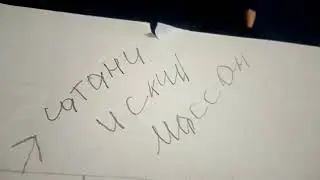 сатани
искии
массон